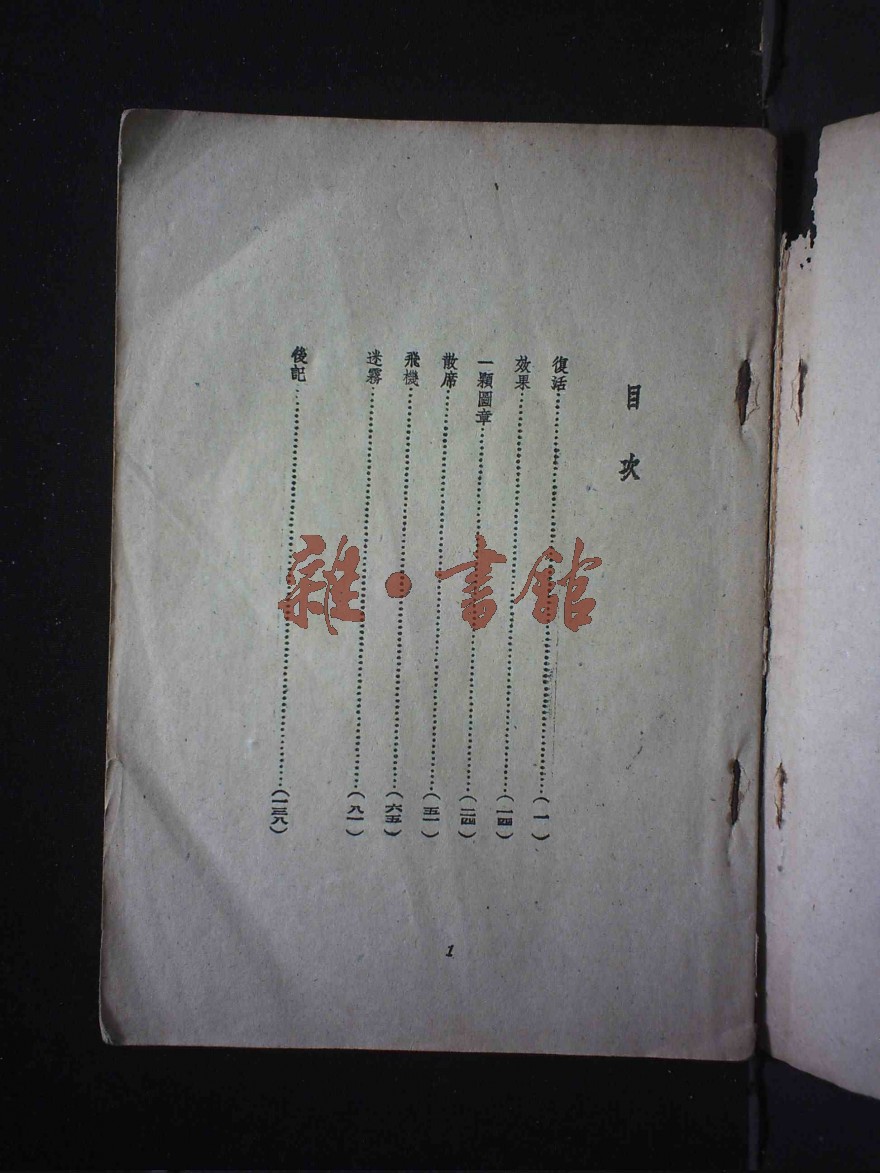 目次
復活……(一)
效果……(一四)
一顆圖章……(二四)
散席……(五一)
飛機……(六五)
迷霧……(八一)
後記……(一三八)
1
雜·書館